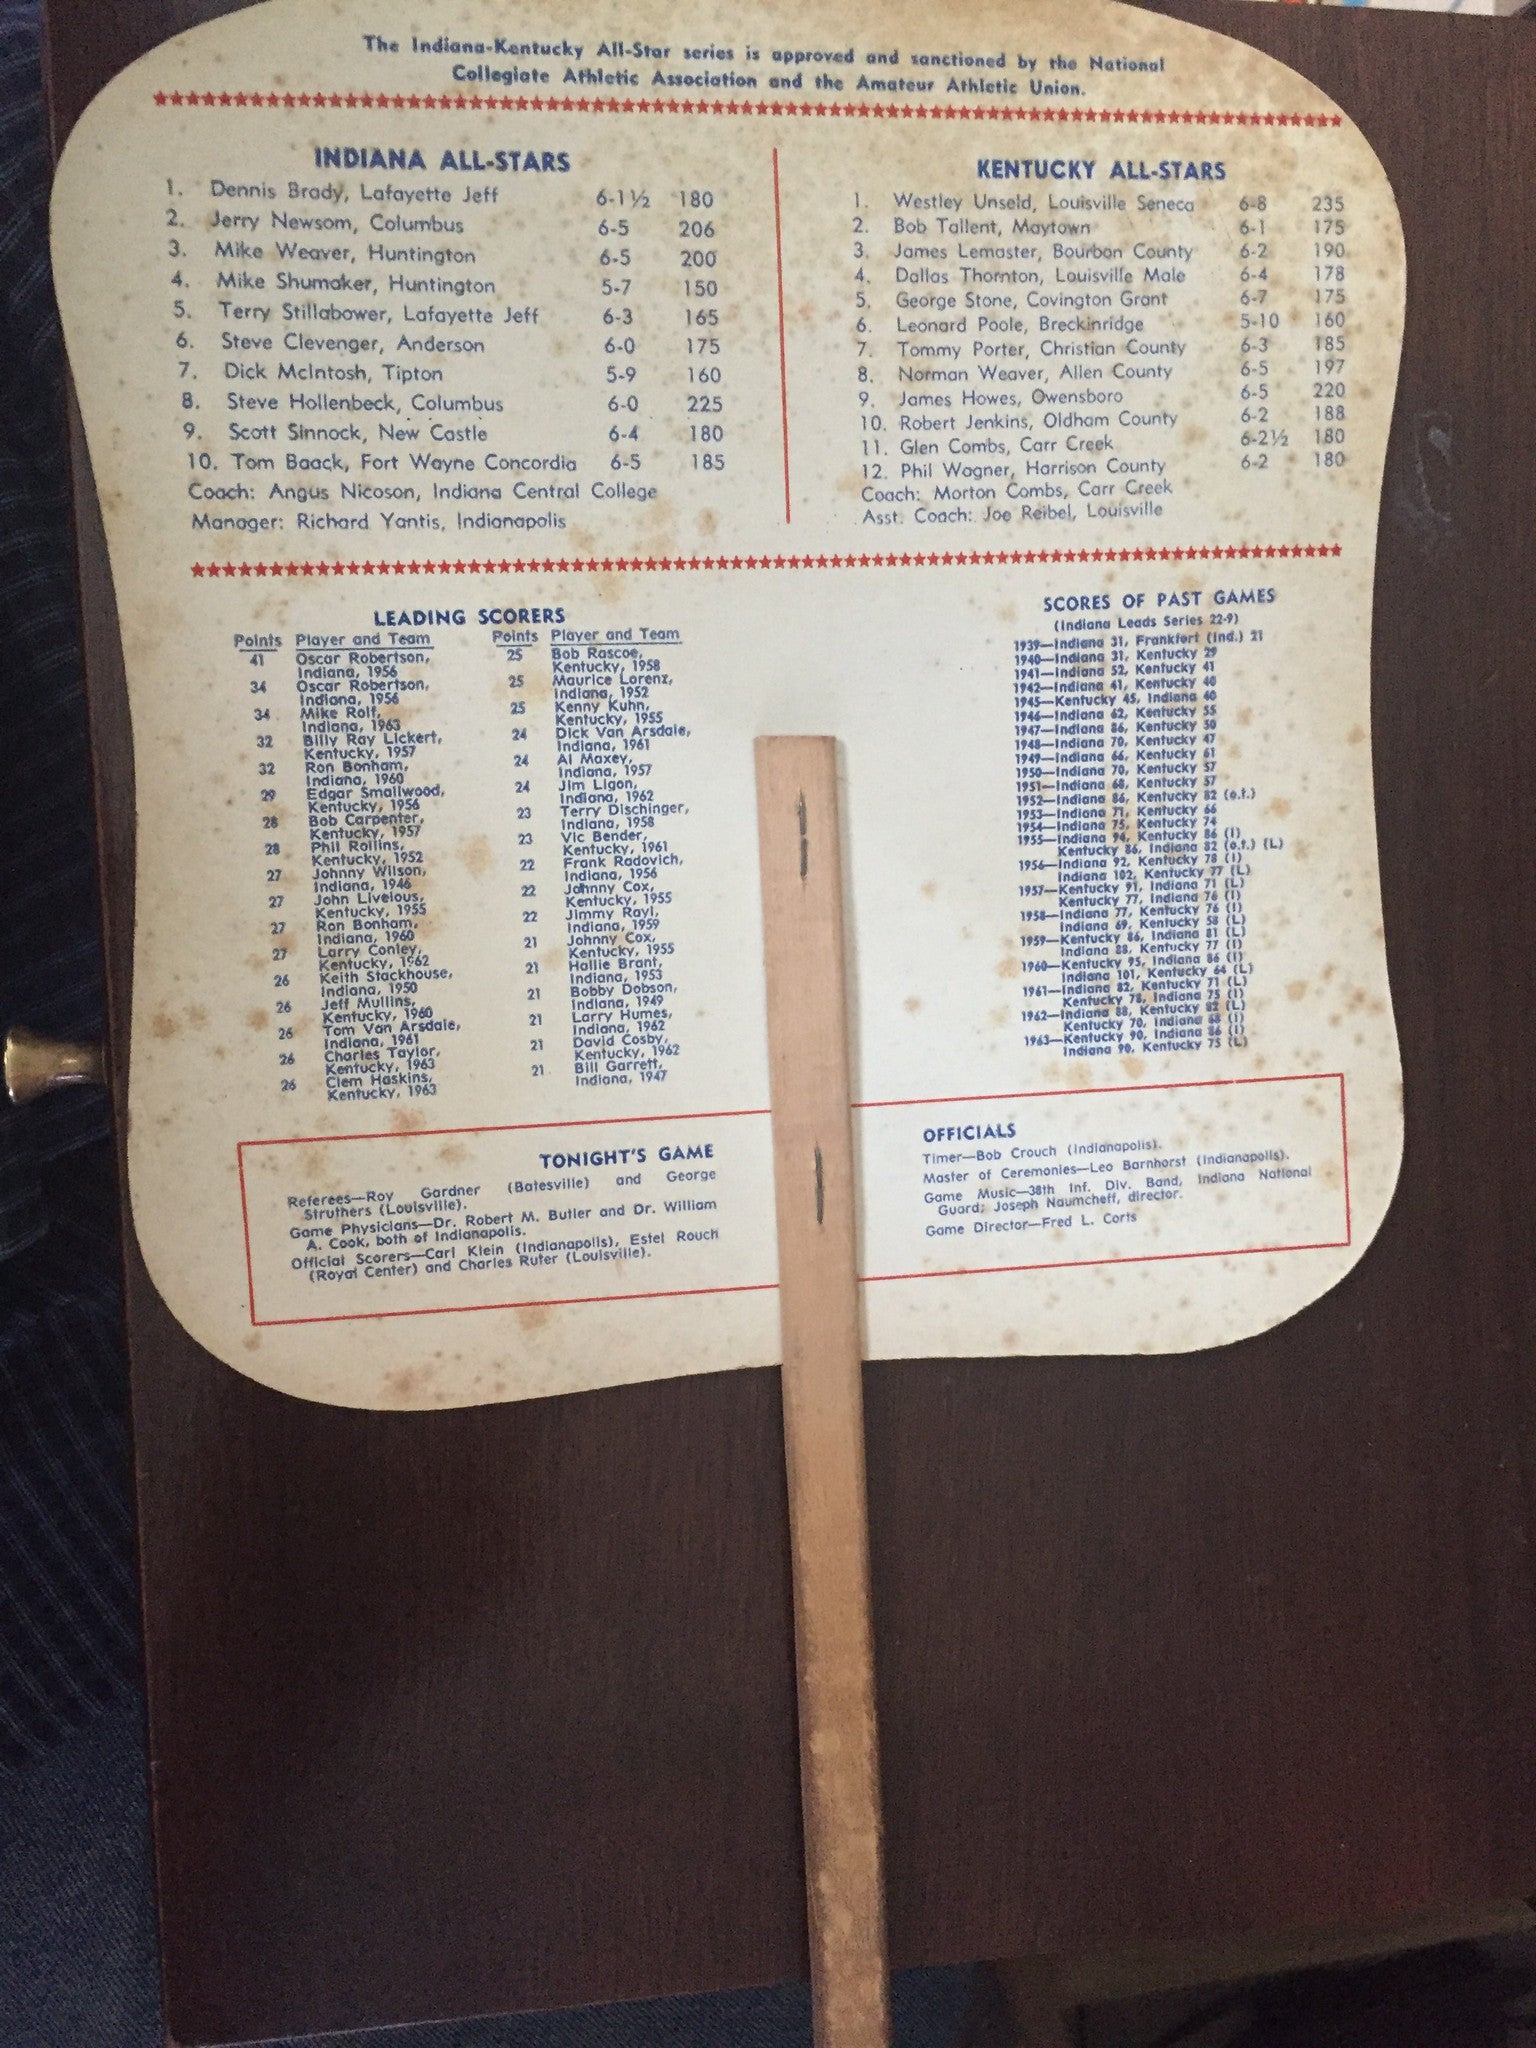 The Indiana-Kentucky All-Star series is approved and sanctioned by the National
Collegiate Athletic Association and the Amateur Athletic Union.
INDIANA ALL-STARS
1. Dennis Brady, Lafayette Jeff 6-1½ 180
2. Jerry Newsom, Columbus 6-5 206
3. Mike Weaver, Huntington 6-5 200
4. Mike Shumaker, Huntington 5-7 150
5. Terry Stillabower, Lafayette Jeff 6-3 165
6. Steve Clevenger, Anderson 6-0 175
7. Dick McIntosh, Tipton 5-9 160
8. Steve Hollenbeck, Columbus 6-0 225
9. Scott Sinnock, New Castle 6-4 180
10. Tom Baack, Fort Wayne Concordia 6-5 185
Coach: Angus Nicoson, Indiana Central College
Manager: Richard Yantis, Indianapolis
KENTUCKY ALL-STARS
1. Westley Unseld, Louisville Seneca 6-8 235
2. Bob Tallent, Maytown 6-1 175
3. James Lemaster, Bourbon County 6-2 190
4. Dallas Thornton, Louisville Male 6-4 178
5. George Stone, Covington Grant 6-7 175
6. Leonard Poole, Breckinridge 5-10 160
7. Tommy Porter, Christian County 6-3 185
8. Norman Weaver, Allen County 6-5 197
9. James Howes, Owensboro 6-5 220
10. Robert Jenkins, Oldham County 6-2 188
11. Glen Combs, Carr Creek 6-2½ 180
12. Phil Wagner, Harrison County 6-2 180
Coach: Morton Combs, Carr Creek
Asst. Coach: Joe Reibel, Louisville
LEADING SCORERS
Points Player and Team
41 Oscar Robertson,
Indiana, 1956
34 Oscar Robertson,
Indiana, 1956
34 Mike Rolf,
Indiana, 1963
32 Billy Ray Lickert,
Kentucky, 1957
32 Ron Bonham,
Indiana, 1960
29 Edgar Smallwood,
Kentucky, 1956
28 Bob Carpenter,
Kentucky, 1957
28 Phil Rollins,
Kentucky, 1952
27 Johnny Wilson,
Indiana, 1946
27 John Livelous,
Kentucky, 1955
27 Ron Bonham,
Indiana, 1960
27 Larry Conley,
Kentucky, 1962
26 Keith Stackhouse,
Indiana, 1950
26 Jeff Mullins,
Kentucky, 1960
26 Tom Van Arsdale,
Indiana, 1961
26 Charles Taylor,
Kentucky, 1963
26 Clem Haskins,
Kentucky, 1963
Points Player and Team
25 Bob Rascoe,
Kentucky, 1958
25 Maurice Lorenz,
Indiana, 1952
25 Kenny Kuhn,
Kentucky, 1955
24 Dick Van Arsdale,
Indiana, 1961
24 Al Maxey,
Indiana, 1957
24 Jim Ligon,
Indiana, 1962
23 Terry Dischinger,
Indiana, 1958
23 Vic Bender,
Kentucky, 1961
22 Frank Radovich,
Indiana, 1956
22 Johnny Cox,
Kentucky, 1955
22 Jimmy Rayl,
Indiana, 1959
21 Johnny Cox,
Kentucky, 1955
21 Hallie Brant,
Indiana, 1953
21 Bobby Dobson,
Indiana, 1949
21 Larry Humes,
Indiana, 1962
21 David Cosby,
Kentucky, 1962
21 Bill Garrett,
Indiana, 1947
SCORES OF PAST GAMES
(Indiana Leads Series 22-9)
1939—Indiana 31, Frankfort (Ind.) 21
1940—Indiana 31, Kentucky 29
1941—Indiana 52, Kentucky 41
1942—Indiana 41, Kentucky 40
1945—Kentucky 45, Indiana 40
1946—Indiana 62, Kentucky 55
1947—Indiana 86, Kentucky 50
1948—Indiana 70, Kentucky 47
1949—Indiana 66, Kentucky 61
1950—Indiana 70, Kentucky 57
1951—Indiana 68, Kentucky 57
1952—Indiana 86, Kentucky 82 (o.t.)
1953—Indiana 71, Kentucky 66
1954—Indiana 75, Kentucky 74
1955—Indiana 94, Kentucky 86 (I)
Kentucky 86, Indiana 82 (o.t.) (L)
1956—Indiana 92, Kentucky 78 (I)
Indiana 102, Kentucky 77 (L)
1957—Kentucky 91, Indiana 71 (L)
Kentucky 77, Indiana 76 (I)
1958—Indiana 77, Kentucky 76 (I)
Indiana 69, Kentucky 58 (L)
1959—Kentucky 86, Indiana 81 (L)
Indiana 88, Kentucky 77 (I)
1960—Kentucky 95, Indiana 86 (I)
Indiana 101, Kentucky 64 (L)
1961—Indiana 82, Kentucky 71 (L)
Kentucky 78, Indiana 75 (I)
1962—Indiana 88, Kentucky 82 (L)
Kentucky 70, Indiana 68 (I)
1963—Kentucky 90, Indiana 86 (I)
Indiana 90, Kentucky 75 (L)
TONIGHT'S GAME
Referees—Roy Gardner (Batesville) and George
Struthers (Louisville).
Game Physicians—Dr. Robert M. Butler and Dr. William
A. Cook, both of Indianapolis.
Official Scorers—Carl Klein (Indianapolis), Estel Rouch
(Royal Center) and Charles Ruter (Louisville).
OFFICIALS
Timer—Bob Crouch (Indianapolis).
Master of Ceremonies—Leo Barnhorst (Indianapolis).
Game Music—38th Inf. Div. Band, Indiana National
Guard; Joseph Naumcheff, director.
Game Director—Fred L. Corts